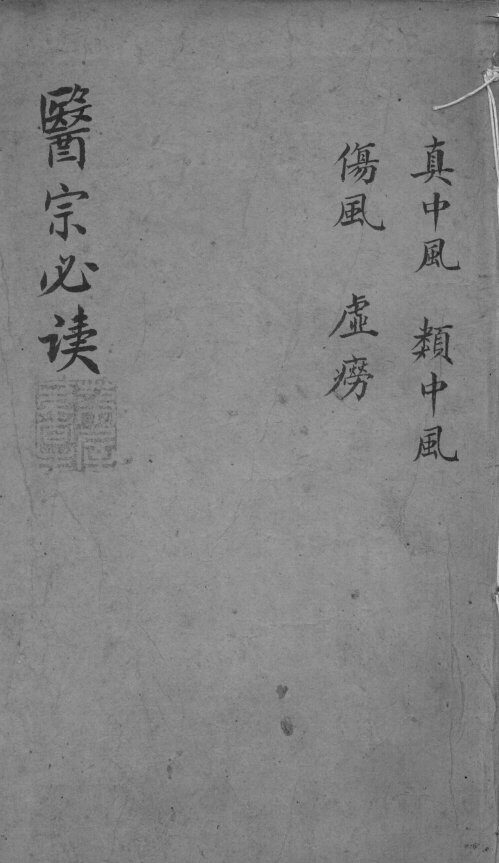 真中風　類中風
傷風　虛癆
醫宗必读